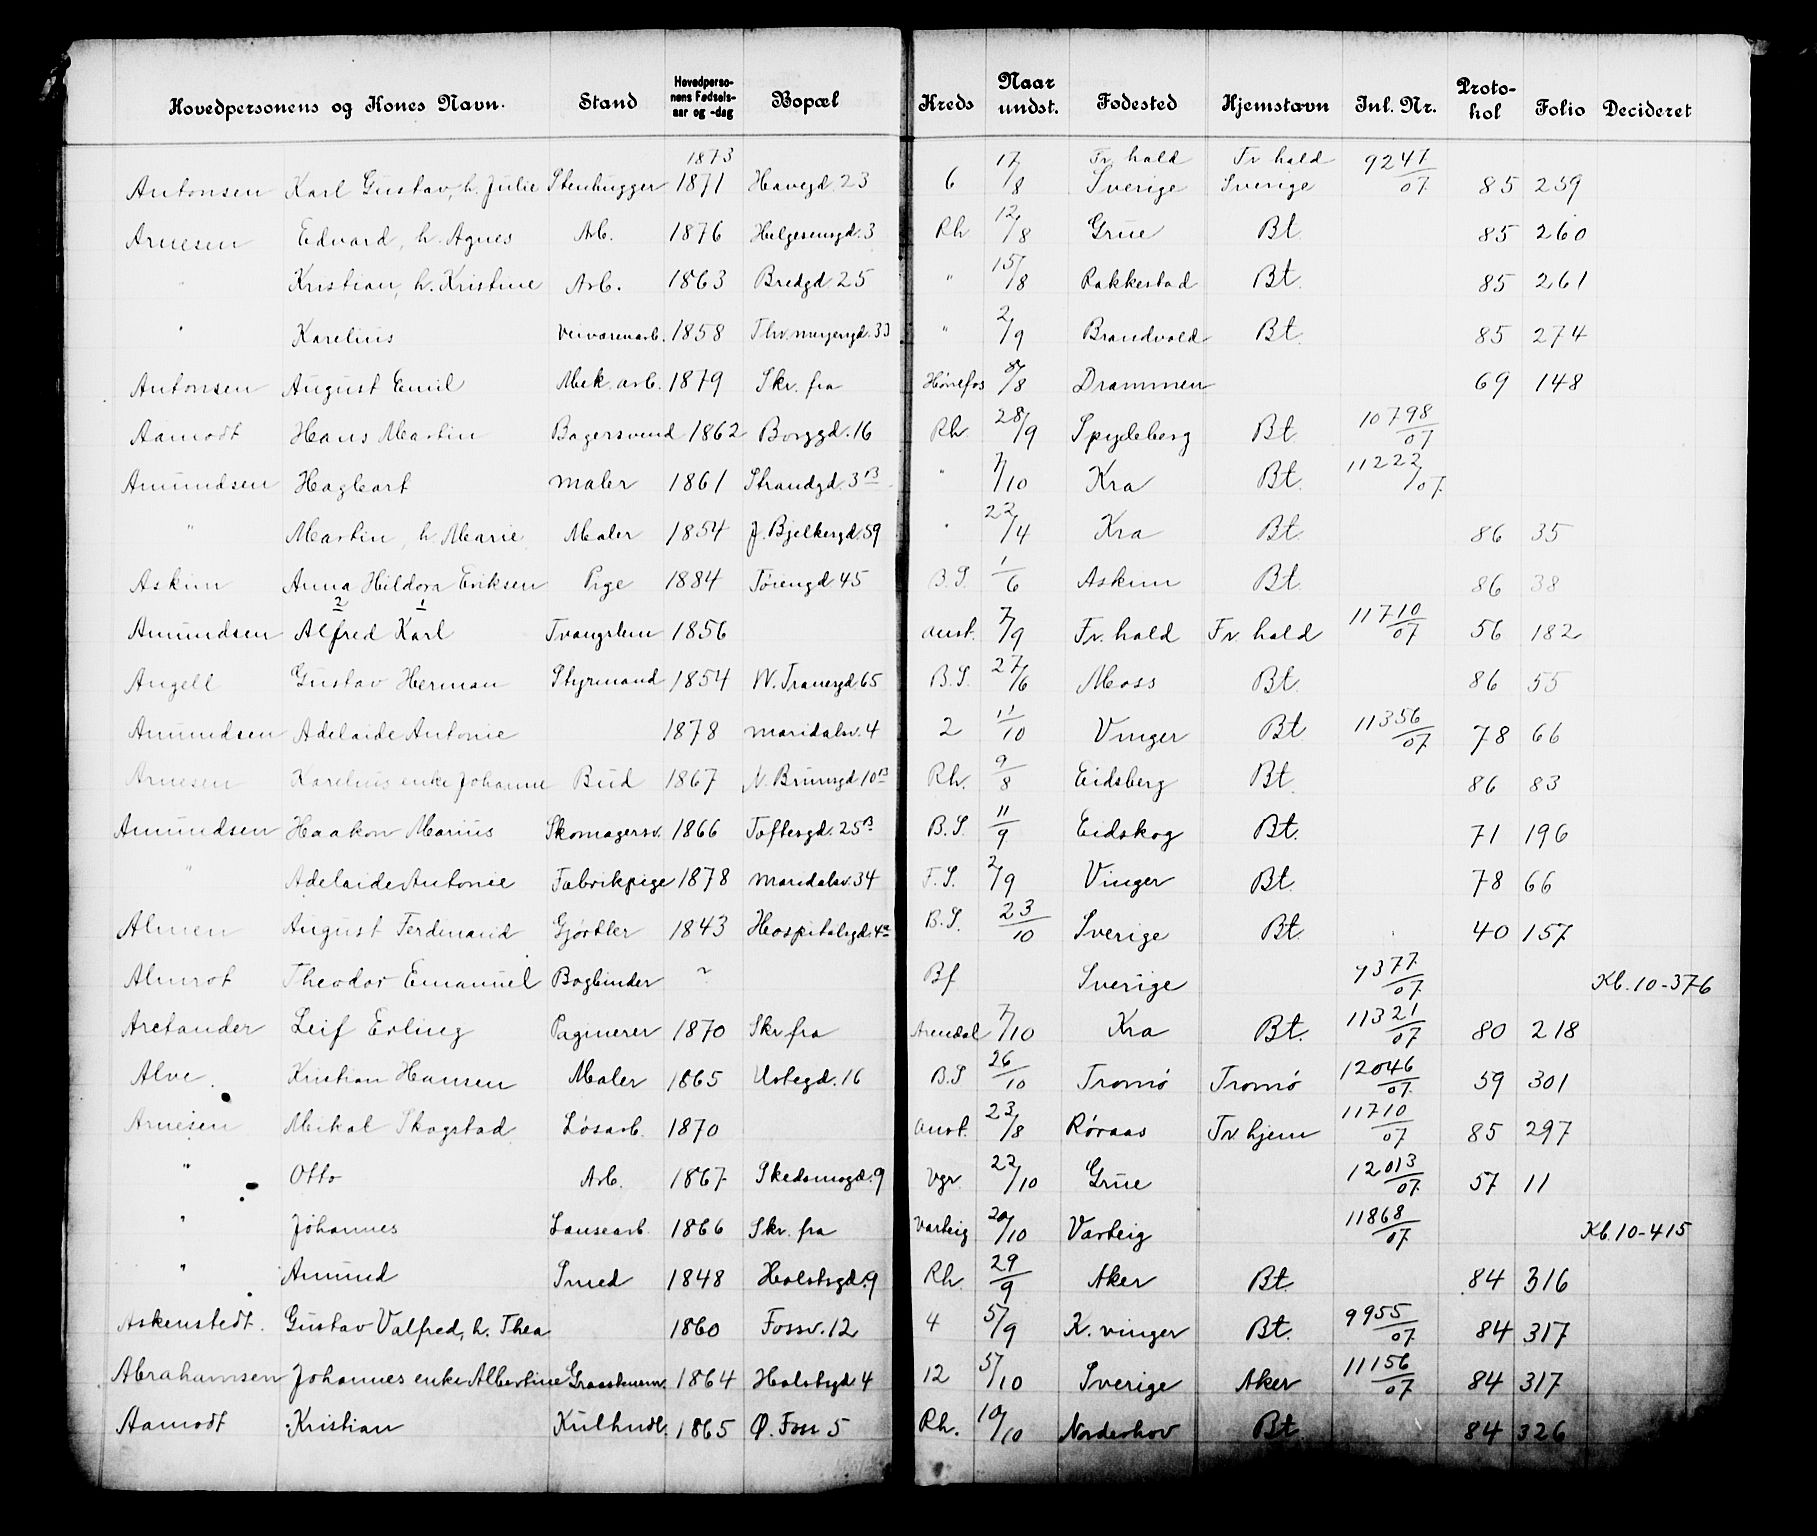 Hovedpersonens og Kones Navn. Stand Hovedpersonens Fødselsaar og -dag Bopæl Kreds Naar undst. Fødested Hjemstavn Inl. Nr. Protohol Folio Decideret
1873 17 Fr.hald Fr.hald 9247
Antonsen Karl Gustav, h. Julie Stenhugger 1871 Havegd. 23 6 /8 Sverige Sverige /07 85 259
Arnesen Edvard, h. Agnes Arb. 1876 Helgesensgd. 3 Rh 12/8 Grue Bt 85 260
" Kristian, h. Kristine Arb. 1863 Bredgd. 25 " 15/8 Rakkestad Bt. 85 261
" Karelius Veivæsenarb. 1858 Thv. meyersgd. 33 " 2/9 Brandvold Bt. 85 274
Antonsen August Emil Mek. arb. 1879 Skr. fra Hønefos /8 Drammen 69 148
Aamodt Hans Martin Bagersvend 1862 Borggd. 16 Rh. 28/9 Spydeberg Bt 10798/07
Amundsen Hagbart maler 1861 Strandgd. 3 B " 7/10 Kra Bt. 11222/07.
" Martin, h Marie Maler 1854 J. Bjelkesgd. 59 " 22/4 Kra Bt. 86 35
Askim Anna Hildora Eriksen Pige 1884 Tøiengd 45 B.S. 1/6 Askim Bt 86 38
2 1
Amundsen Alfred Karl Tvangslem 1856 anst. 7/9 Fr. hald Fr. hald 11710/07 56 182
Angell Gustav Herman Styrmand 1854 W. Tranesgd 65 B.S. 27/6 Moss Bt. 86 55
Amundsen Adelaide Antonie 1878 maridalsv. 4 2 11/10 Vinger Bt 11356/07 78 66
Arnesen Karelius enke Johanne Bud 1867 N. Brunsgd 10 B Rh. 9/8 Eidsberg Bt. 86 83
Amundsen Haakon Marius Skomagersv. 1866 Toftesgd. 25 B B.S. 11/9 Eidskog Bt. 71 196
" Adelaide Antonie Fabrikpige 1878 maridalsv. 34 F.S. 2/9 Vinger Bt. 78 66
Almen August Ferdinand Gjørtler 1843 Hospitalsgd. 4a B.S. 23/10 Sverige Bt. 40 157
Almrot Theodor Emanuel Bogbinder ? Bf Sverige 9377/07. Kb. 10-376
Arctander Leif Erling Paginerer 1870 Skr fra Arendal 7/10 Kra Bt. 11321/07 80 218
Alve Kristian Hansen Maler 1865 Ustegd. 16 B.S 26/10 Tromø Tromø 12046/07. 59 301
Arnesen Mikal Skogstad Løsarb. 1870 anst. 23/8 Røraas Fr hjem 11710/07 85 297
" Otto Arb. 1867 Skedsmogd. 9 Vgr. 22/10 Grue 12013/07. 57 11
" Johannes Lausearb. 1866 Skr. fra Varteig 20/10 Varteig 11868/07 Kb. 10-415
" Amund Smed 1848 Holstsgd. 9 Rh. 29/9 Aker Bt. 84 316
Askenstedt. Gustav Valfred, h. Thea 1860 Fossv. 12 4 5/9 K. vinger Bt. 9955/07 84 317
Abrahamsen Johannes enke Albertine Graastensm. 1864 Holstsgd 4 12 5/10 Sverige Aker 11156/07 84 317
Aamodt Kristian Kulhndl. 1865 Ø. Foss 5 Rh. 10/10 Norderhov Bt. 84 326